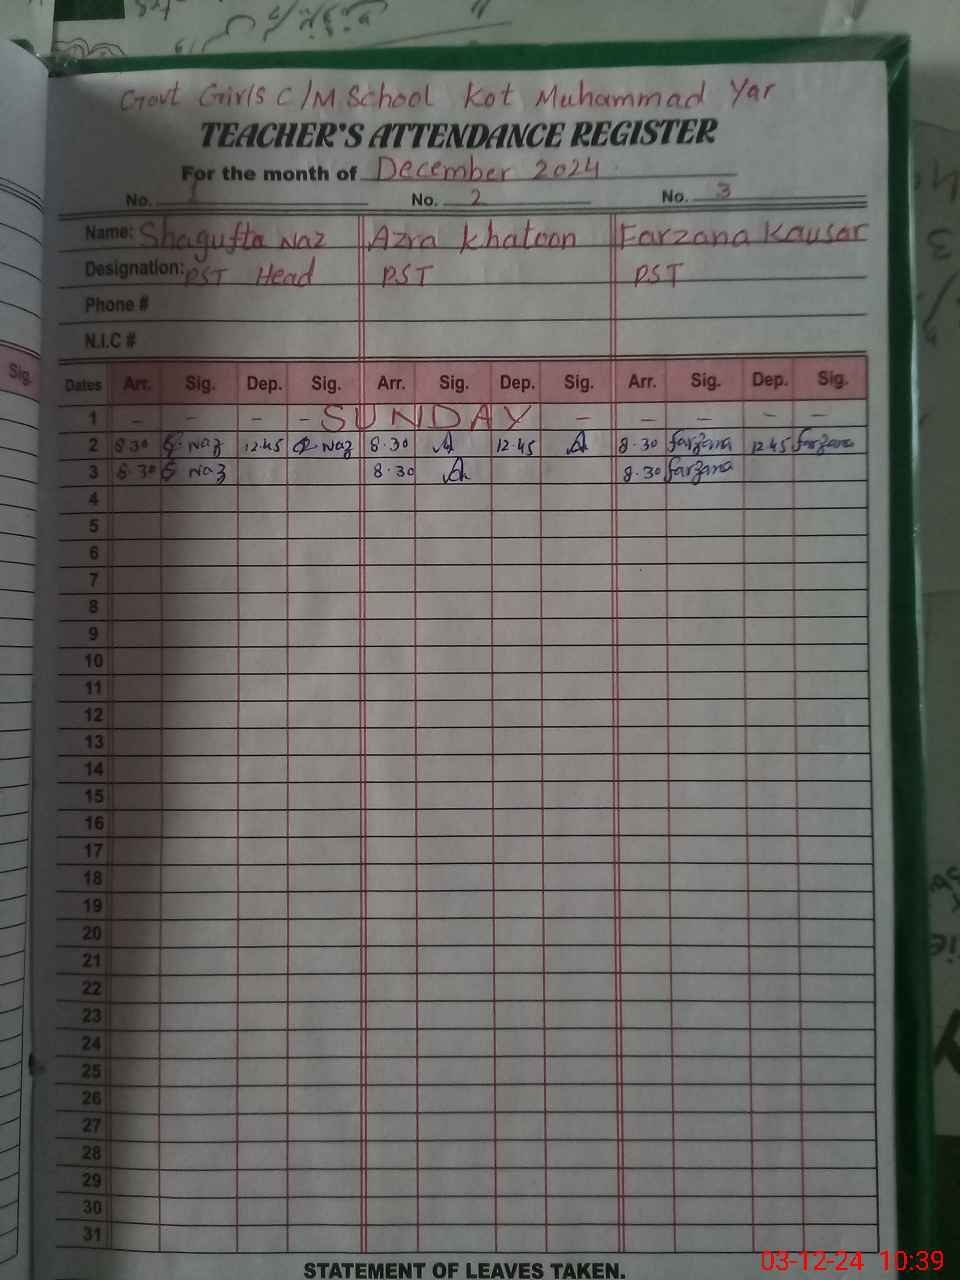 Govt Girls C/M School Kot Muhammad Yar
TEACHER'S ATTENDANCE REGISTER
For the month of December 2024
No. 1 No. 2 No. 3
Name: Shagufta Naz Azra Khatoon Farzana Kausar
Designation: PST Head PST PST
Phone #
N.I.C #
Sig.
Dates Arr. Sig. Dep. Sig. Arr. Sig. Dep. Sig. Arr. Sig. Dep. Sig.
1 - - - - SUNDAY - - - - -
2 8.30 S. Naz 12.45 S. Naz 8.30 A 12.45 A 8.30 farzana 12.45 farzana
3 8.30 S Naz 8.30 A 8.30 farzana
4
5
6
7
8
9
10
11
12
13
14
15
16
17
18
19
20
21
22
23
24
25
26
27
28
29
30
31
STATEMENT OF LEAVES TAKEN.
03-12-24 10:39